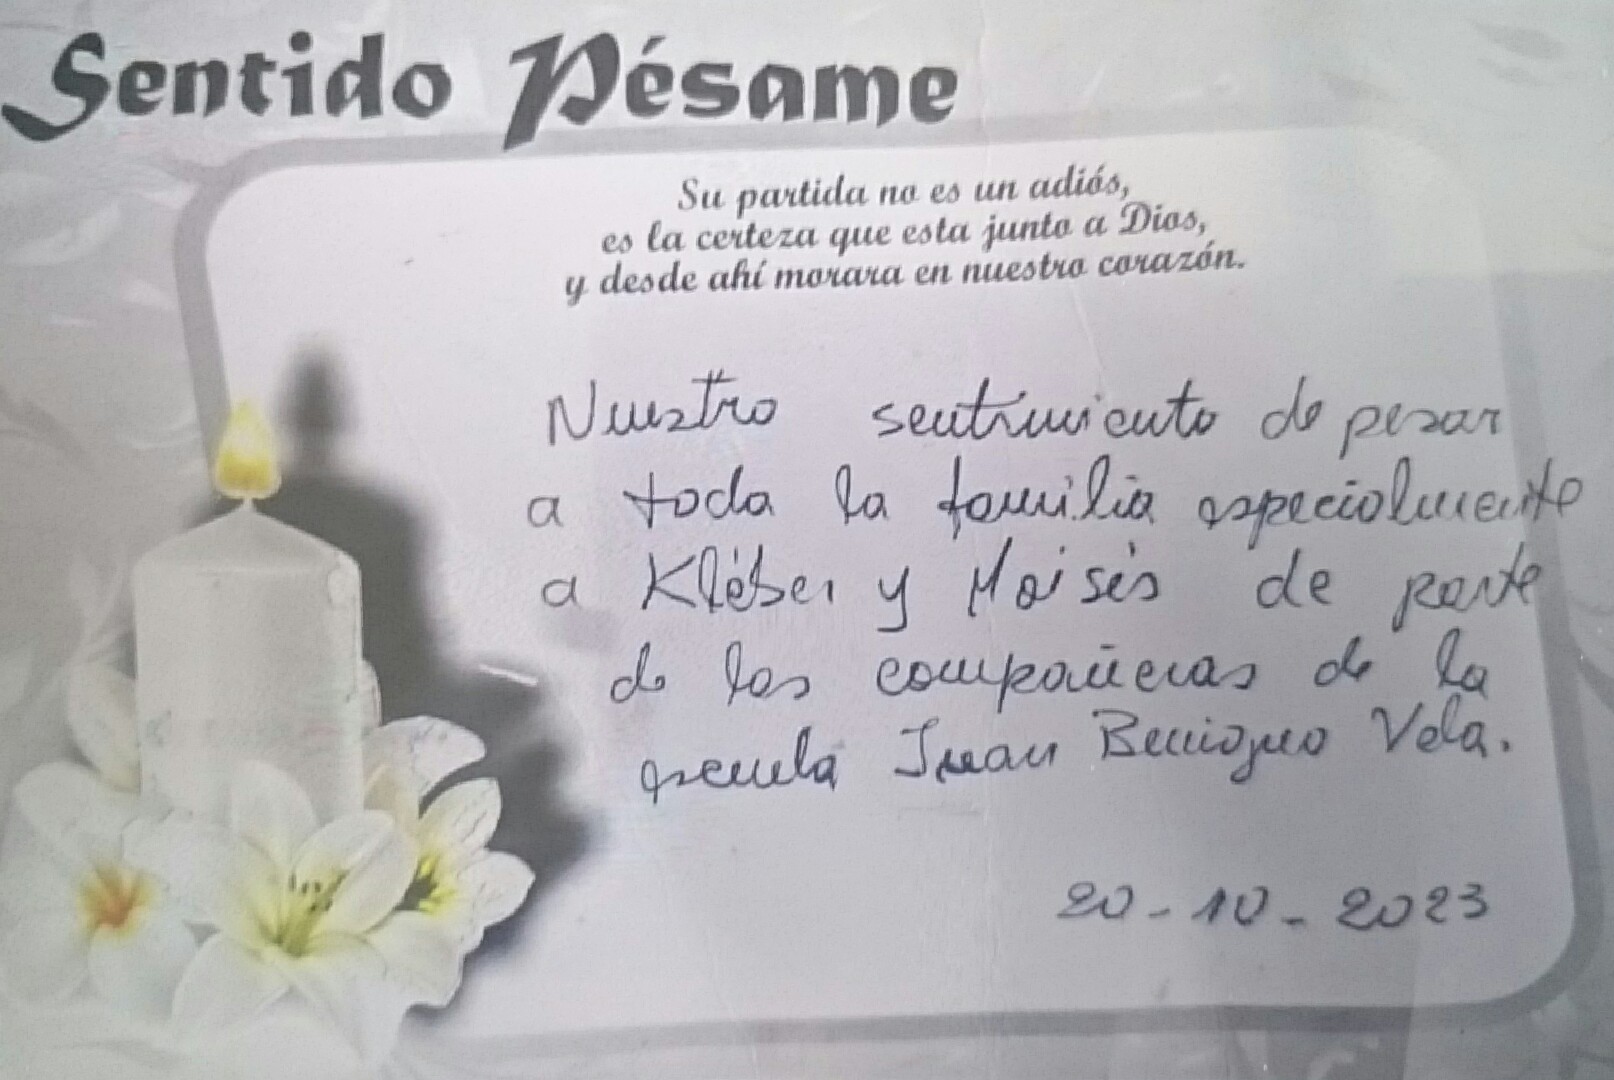 Sentido Pésame
Su partida no es un adiós,
es la certeza que esta junto a Dios,
y desde ahí morara en nuestro corazón.
Nuestro sentimiento de pesar
a toda la familia especialmente
a Kléber y Moisés de parte
de las compañeras de la
escuela Juan Benigno Vela.
20-10-2023